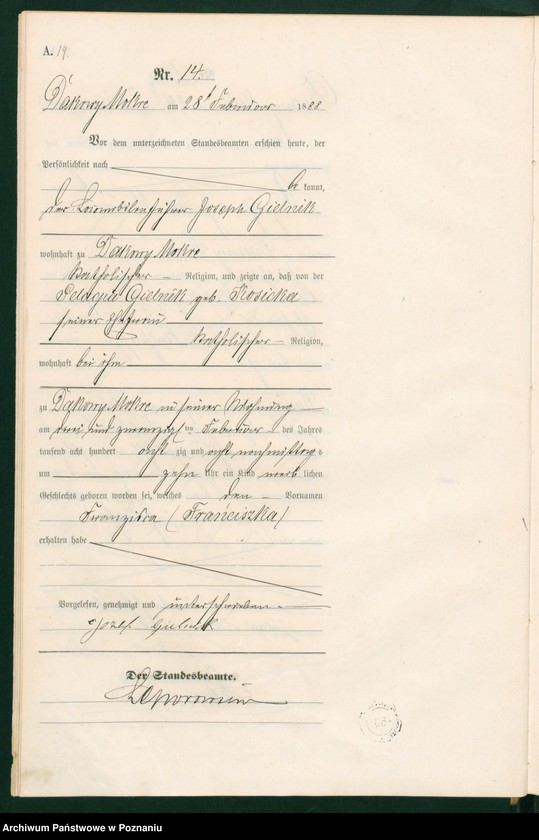 A. 19.
Nr. 14.
Dakowy Mokre am 28t Februar 1888
Vor dem unterzeichneten Standesbeamten erschien heute, der
Persönlichkeit nach
be kannt,
der Locomobilenführer Joseph Gielnik
wohnhaft zu Dakowy Mokre
katholischer Religion, und zeigte an, daß von der
Pelagia Gielnik geb. Kosicka
seiner Ehefrau
katholischer Religion,
wohnhaft bei ihm
zu Dakowy Mokre in seiner Wohnung
am drei und zwanzigsten Februar des Jahres
tausend acht hundert acht zig und acht nachmittags
um zehn Uhr ein Kind weib lichen
Geschlechts geboren worden sei, welches den Vornamen
Franziska (Franciszka)
erhalten habe
Vorgelesen, genehmigt und unterschrieben
Józef Gielnik
Der Standesbeamte.
Archiwum Państwowe w Poznaniu